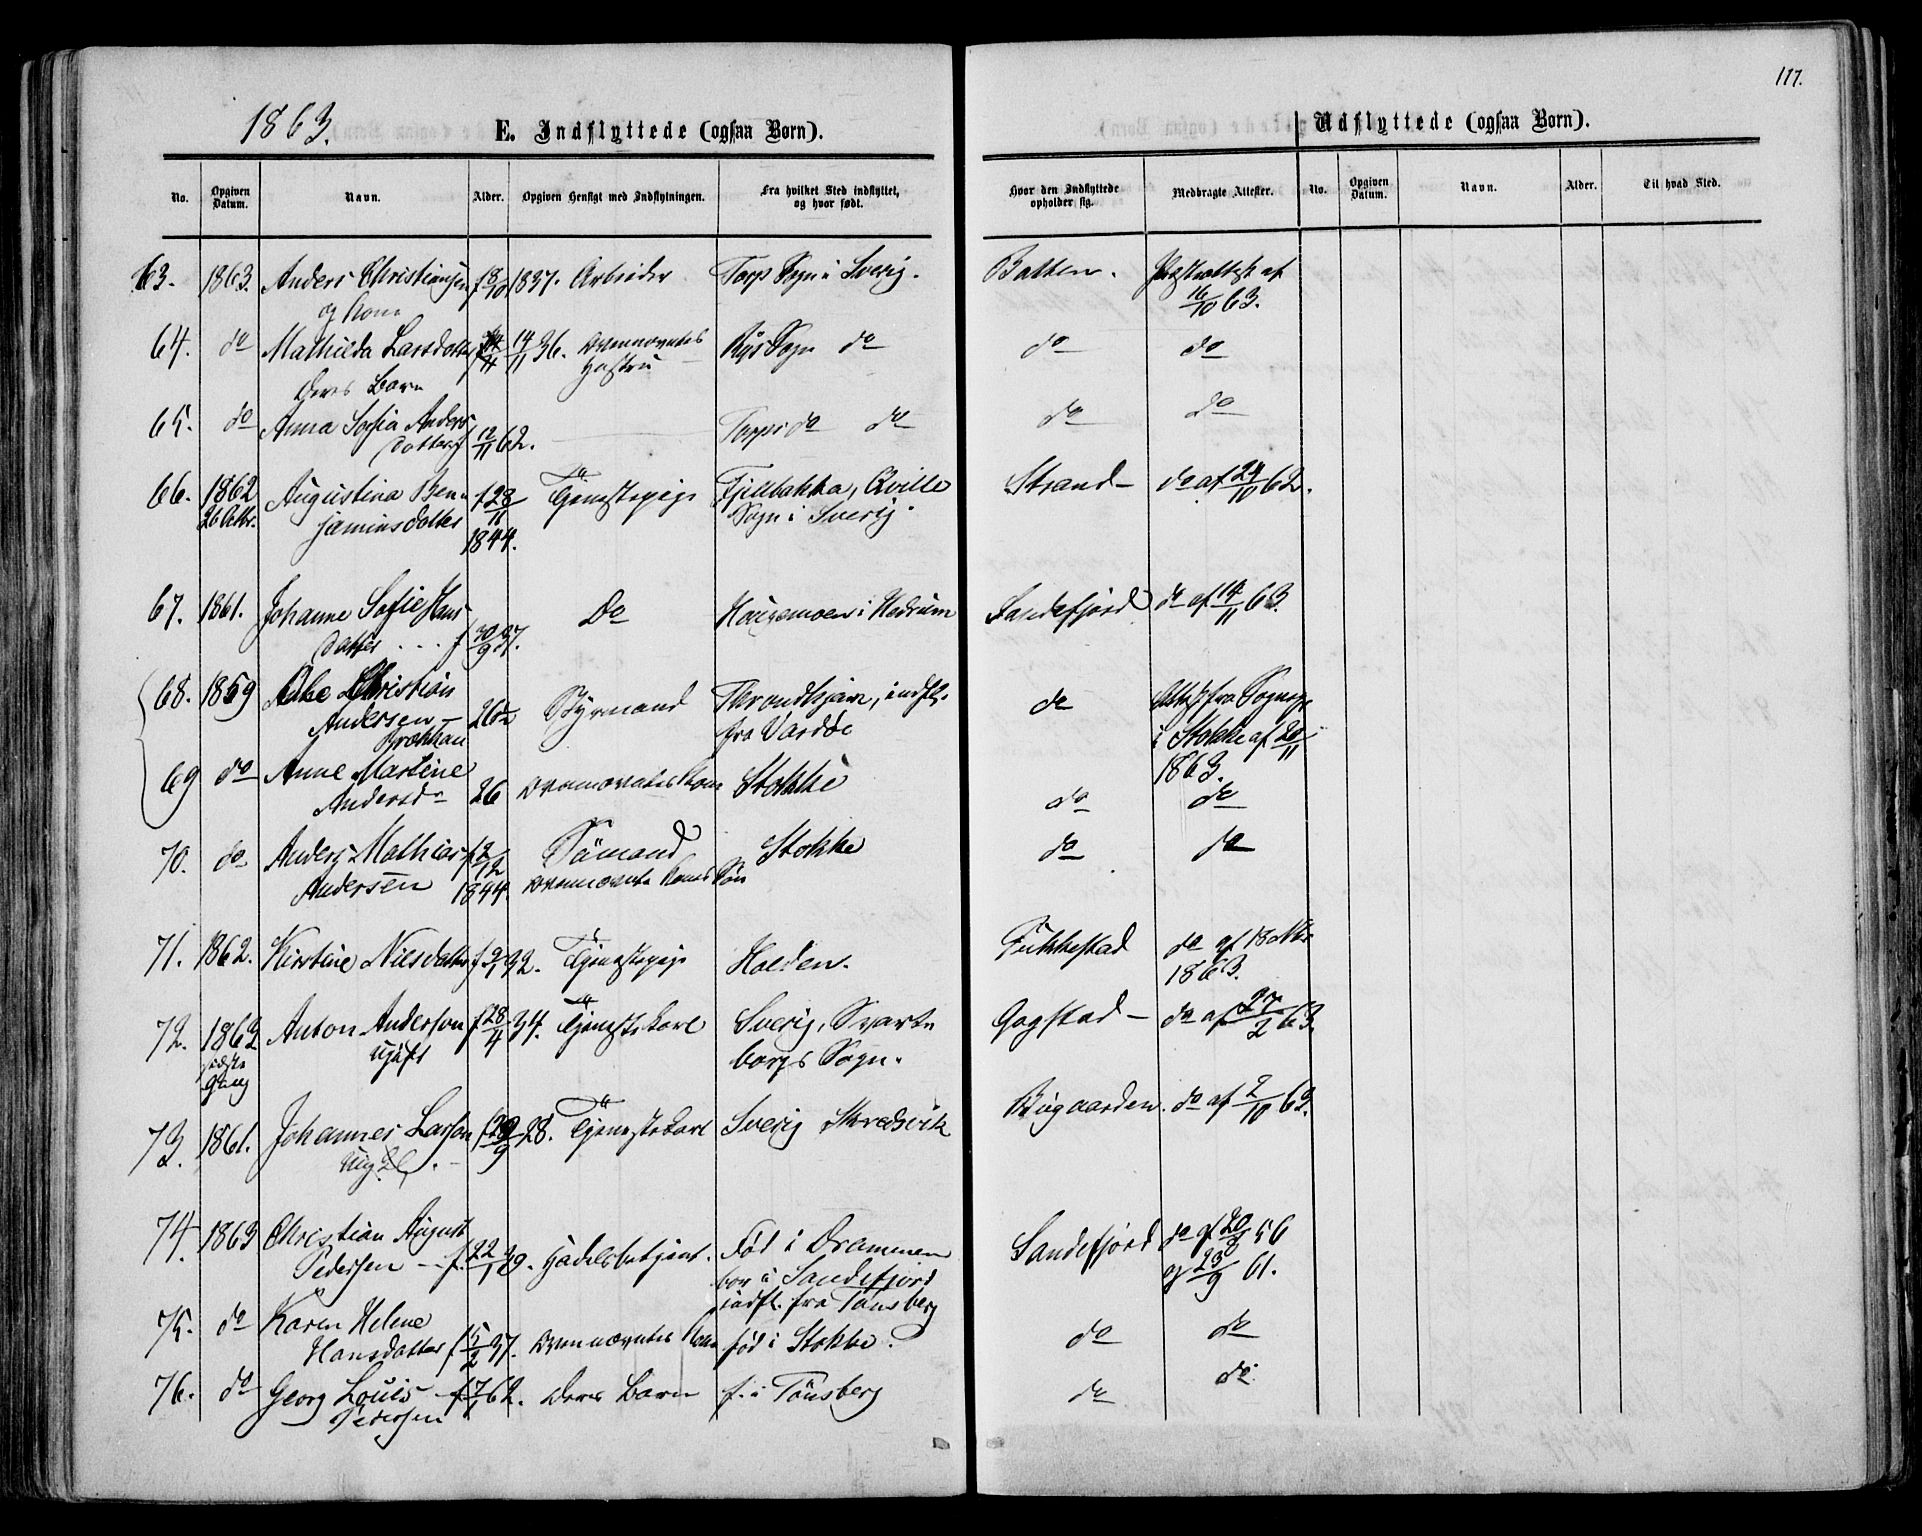 117.
1863.
E. Indflyttede (ogsaa Børn).
Udflyttede (ogsaa Børn).
No. Opgiven Datum. Navn. Alder. Opgiven Hensigt med Indflytningen. Fra hvilket Sted indflyttet, og hvor født. Hvor den Indflyttede opholder sig. Medbragte Attester. No. Opgiven Datum. Navn. Alder. Til hvad Sted.
63. 1863. Anders Christiansen f 18/10 1837. Arbeider Torp Sogn i Sverig. Batten. Præsteattest af
og Kone 16/10 63.
64. do Mathilda Larsdotter 14/11 36. Ovennævntes Sogn do do do
Hustru
deres Barn
65. do Anna Sofia Anders Torps do do do do
Dotter 12/11 62.
66. 1862 Augustina Ben- f 28/11 Tjenestepige Fjellbakka, Qville Strand do af 24/10 62.
26 Octbr. jaminsdotter 1844. Sogn i Sverig.
67. 1861. Johanne Sofie Hans Do Haugemoen i Hedrum Sandefjord do af 14/11 63.
Datter f 30/9 37.
68. 1859 Christian 26 Styrmand Throndhjem, indfl. do Attest fra Sognepr.
Andersen fra Vardöe i Stokke af 20/11
1863.
69 do Anne Martine 26 Ovennævntes Kone Stokke do do
Andersd.
70. do Anders Mathias f 2/12 Sömand Stokke do do
Andersen 1844. Ovennævnte Kones Søn
71. 1862. Kirstine Nilsdatter f 9/1 32. Tjenestepige Holden. Fükkestad do af 18 Nbr.
1863.
72. 1862 Anton Anderson f 28/4 34. Tjenestekarl Sverig, Svarte Gogstad do af 27/2 63.
sidste Gang ugift borgs Sogn.
73. 1861. Johannes Larson f 29/9 28. Tjenestekarl Sverig Skredsvik Bugaarden. do af 2/10 63.
74. 1863 Christian August Sandefjord do af 20/8 56
Pedersen f. 22/1 39. Handelsbetjent. Fød i Drammen og 23/9 61.
bor i Sandefjord
indfl. fra Tønsberg
75. do Karen Helene
Hansdatter f 15/2 37. Ovennævntes Kone fød i Stokke. do do
76. do Georg Louis f 7/1 62. Deres Barn f. i Tönsberg do do.
Pedersen